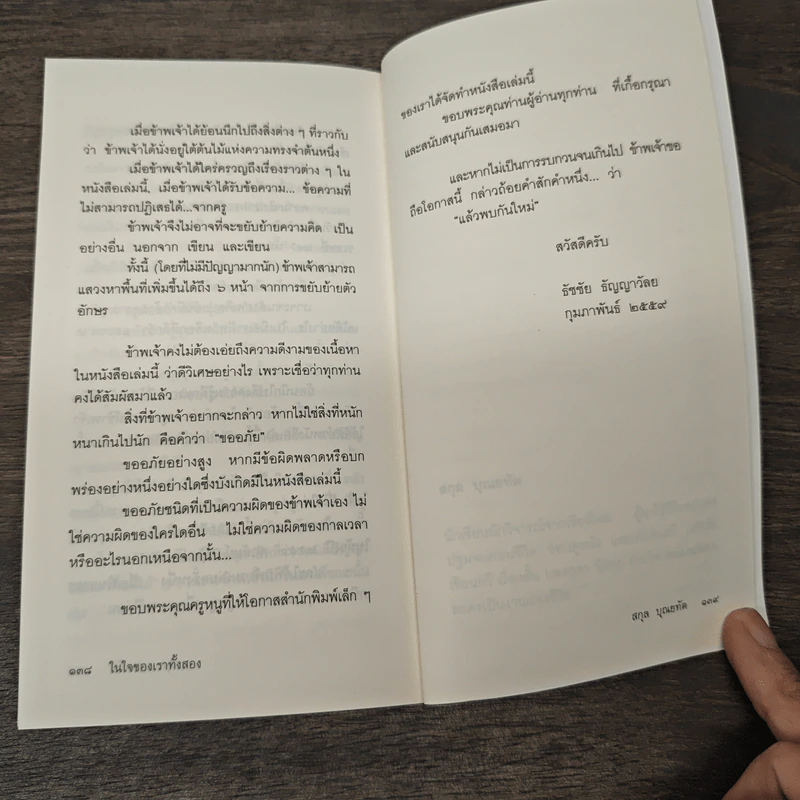 เมื่อข้าพเจ้าได้ย้อนนึกไปถึงสิ่งต่าง ๆ ที่ราวกับ
ว่า ข้าพเจ้าได้นั่งอยู่ใต้ต้นไม้แห่งความทรงจำต้นหนึ่ง
เมื่อข้าพเจ้าได้ใคร่ครวญถึงเรื่องราวต่าง ๆ ใน
หนังสือเล่มนี้, เมื่อข้าพเจ้าได้รับข้อความ... ข้อความที่
ไม่สามารถปฏิเสธได้...จากครู
ข้าพเจ้าจึงไม่อาจที่จะขยับย้ายความคิด เป็น
อย่างอื่น นอกจาก เขียน และเขียน
ทั้งนี้ (โดยที่ไม่มีปัญญามากนัก) ข้าพเจ้าสามารถ
แสวงหาพื้นที่เพิ่มขึ้นได้ถึง ๖ หน้า จากการขยับย้ายตัว
อักษร
ข้าพเจ้าคงไม่ต้องเอ่ยถึงความดีงามของเนื้อหา
ในหนังสือเล่มนี้ ว่าดีวิเศษอย่างไร เพราะเชื่อว่าทุกท่าน
คงได้สัมผัสมาแล้ว
สิ่งที่ข้าพเจ้าอยากจะกล่าว หากไม่ใช่สิ่งที่หนัก
หนาเกินไปนัก คือคำว่า “ขออภัย”
ขออภัยอย่างสูง หากมีข้อผิดพลาดหรือบก
พร่องอย่างหนึ่งอย่างใดซึ่งบังเกิดมีในหนังสือเล่มนี้
ขออภัยชนิดที่เป็นความผิดของข้าพเจ้าเอง ไม่
ใช่ความผิดของใครใดอื่น ไม่ใช่ความผิดของกาลเวลา
หรืออะไรนอกเหนือจากนั้น...
ขอบพระคุณครูหนูที่ให้โอกาสสำนักพิมพ์เล็ก ๆ
๑๓๘ ในใจของเราทั้งสอง
ของเราได้จัดทำหนังสือเล่มนี้
ขอบพระคุณท่านผู้อ่านทุกท่าน ที่เกื้อกรุณา
และสนับสนุนกันเสมอมา
และหากไม่เป็นการรบกวนจนเกินไป ข้าพเจ้าขอ
ถือโอกาสนี้ กล่าวถ้อยคำสักคำหนึ่ง... ว่า
“แล้วพบกันใหม่”
สวัสดีครับ
ธัชชัย ธัญญาวัลย
กุมภาพันธ์ ๒๕๕๙
สกุล บุณยทัต ๑๓๙